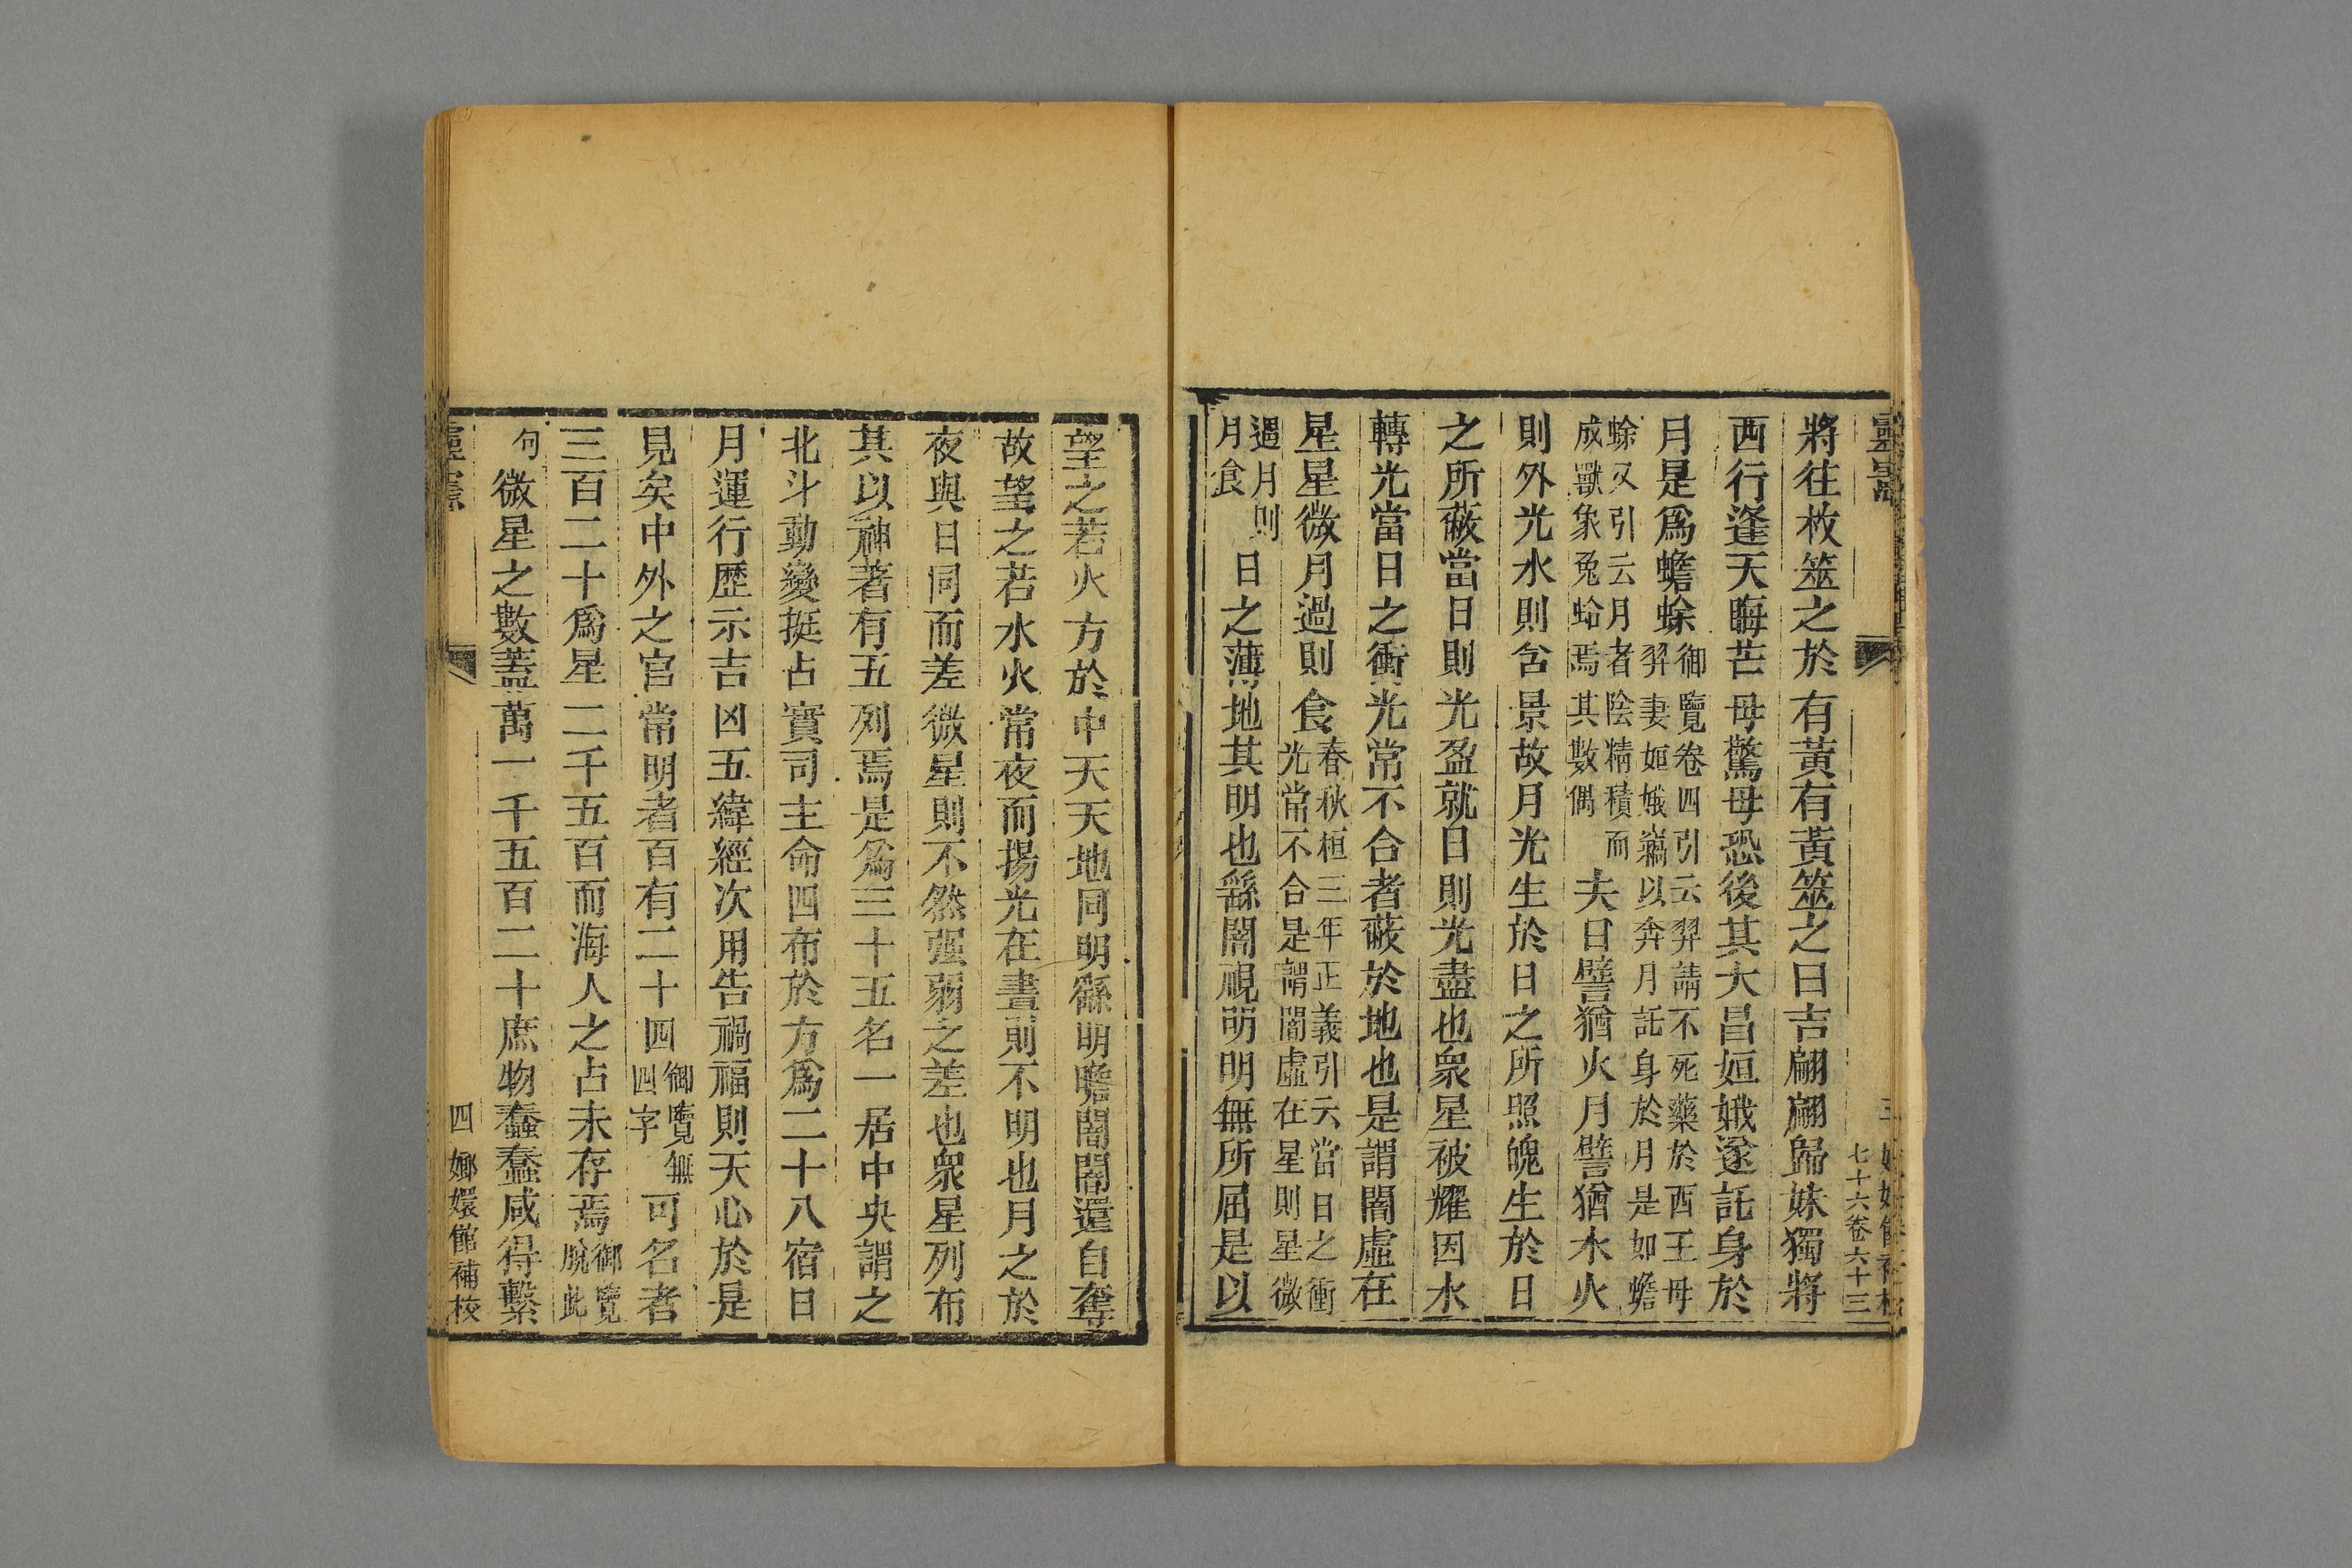 靈憲
七十六卷六十三
將往枚筮之於有黃有黃筮之曰吉翩翩歸妹獨將
西行逢天晦芒母驚母恐後其大昌姮娥遂託身於
月是爲蟾蜍御覽卷四引云羿請不死藥於西王母羿妻姮娥竊以奔月託身於月是如蟾
蜍又引云月者陰精積而成獸象兔蛤焉其數偶夫日譬猶火月譬猶水火
則外光水則含景故月光生於日之所照魄生於日
之所蔽當日則光盈就日則光盡也衆星被耀因水
轉光當日之衝光常不合者蔽於地也是謂闇虛在
星星微月過則食春秋桓三年正義引云當日之衝光常不合是謂闇虛在星則星微
遇月則月食日之薄地其明也繇闇視明明無所屈是以
望之若火方於中天天地同明繇明瞻闇闇還自奪
故望之若水火當夜而揚光在晝則不明也月之於
夜與日同而差微星則不然强弱之差也衆星列布
其以神著有五列焉是爲三十五名一居中央謂之
北斗動變挺占實司主命四布於方爲二十八宿日
月運行歷示吉凶五緯經次用告禍福則天心於是
見矣中外之官常明者百有二十四御覽無四字可名者
三百二十爲星二千五百而海人之占未存焉御覽脫此
句微星之數蓋萬一千五百二十庶物蠢蠢咸得繫
靈憲
四 嫏嬛館補校